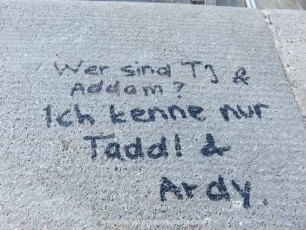 Wer sind TJ &
Addam?
Ich kenne nur
Taddl &
Ardy.